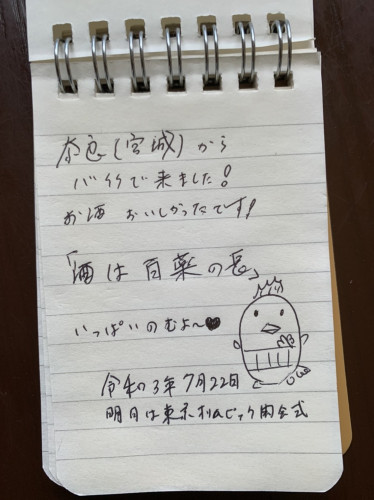 (宮城)から
バイクで来ました!
お酒 おいしかったです!
「酒は百薬の長」
いっぱいのむよ〜♥
令和3年7月22日
明日は東京オリムピック開会式